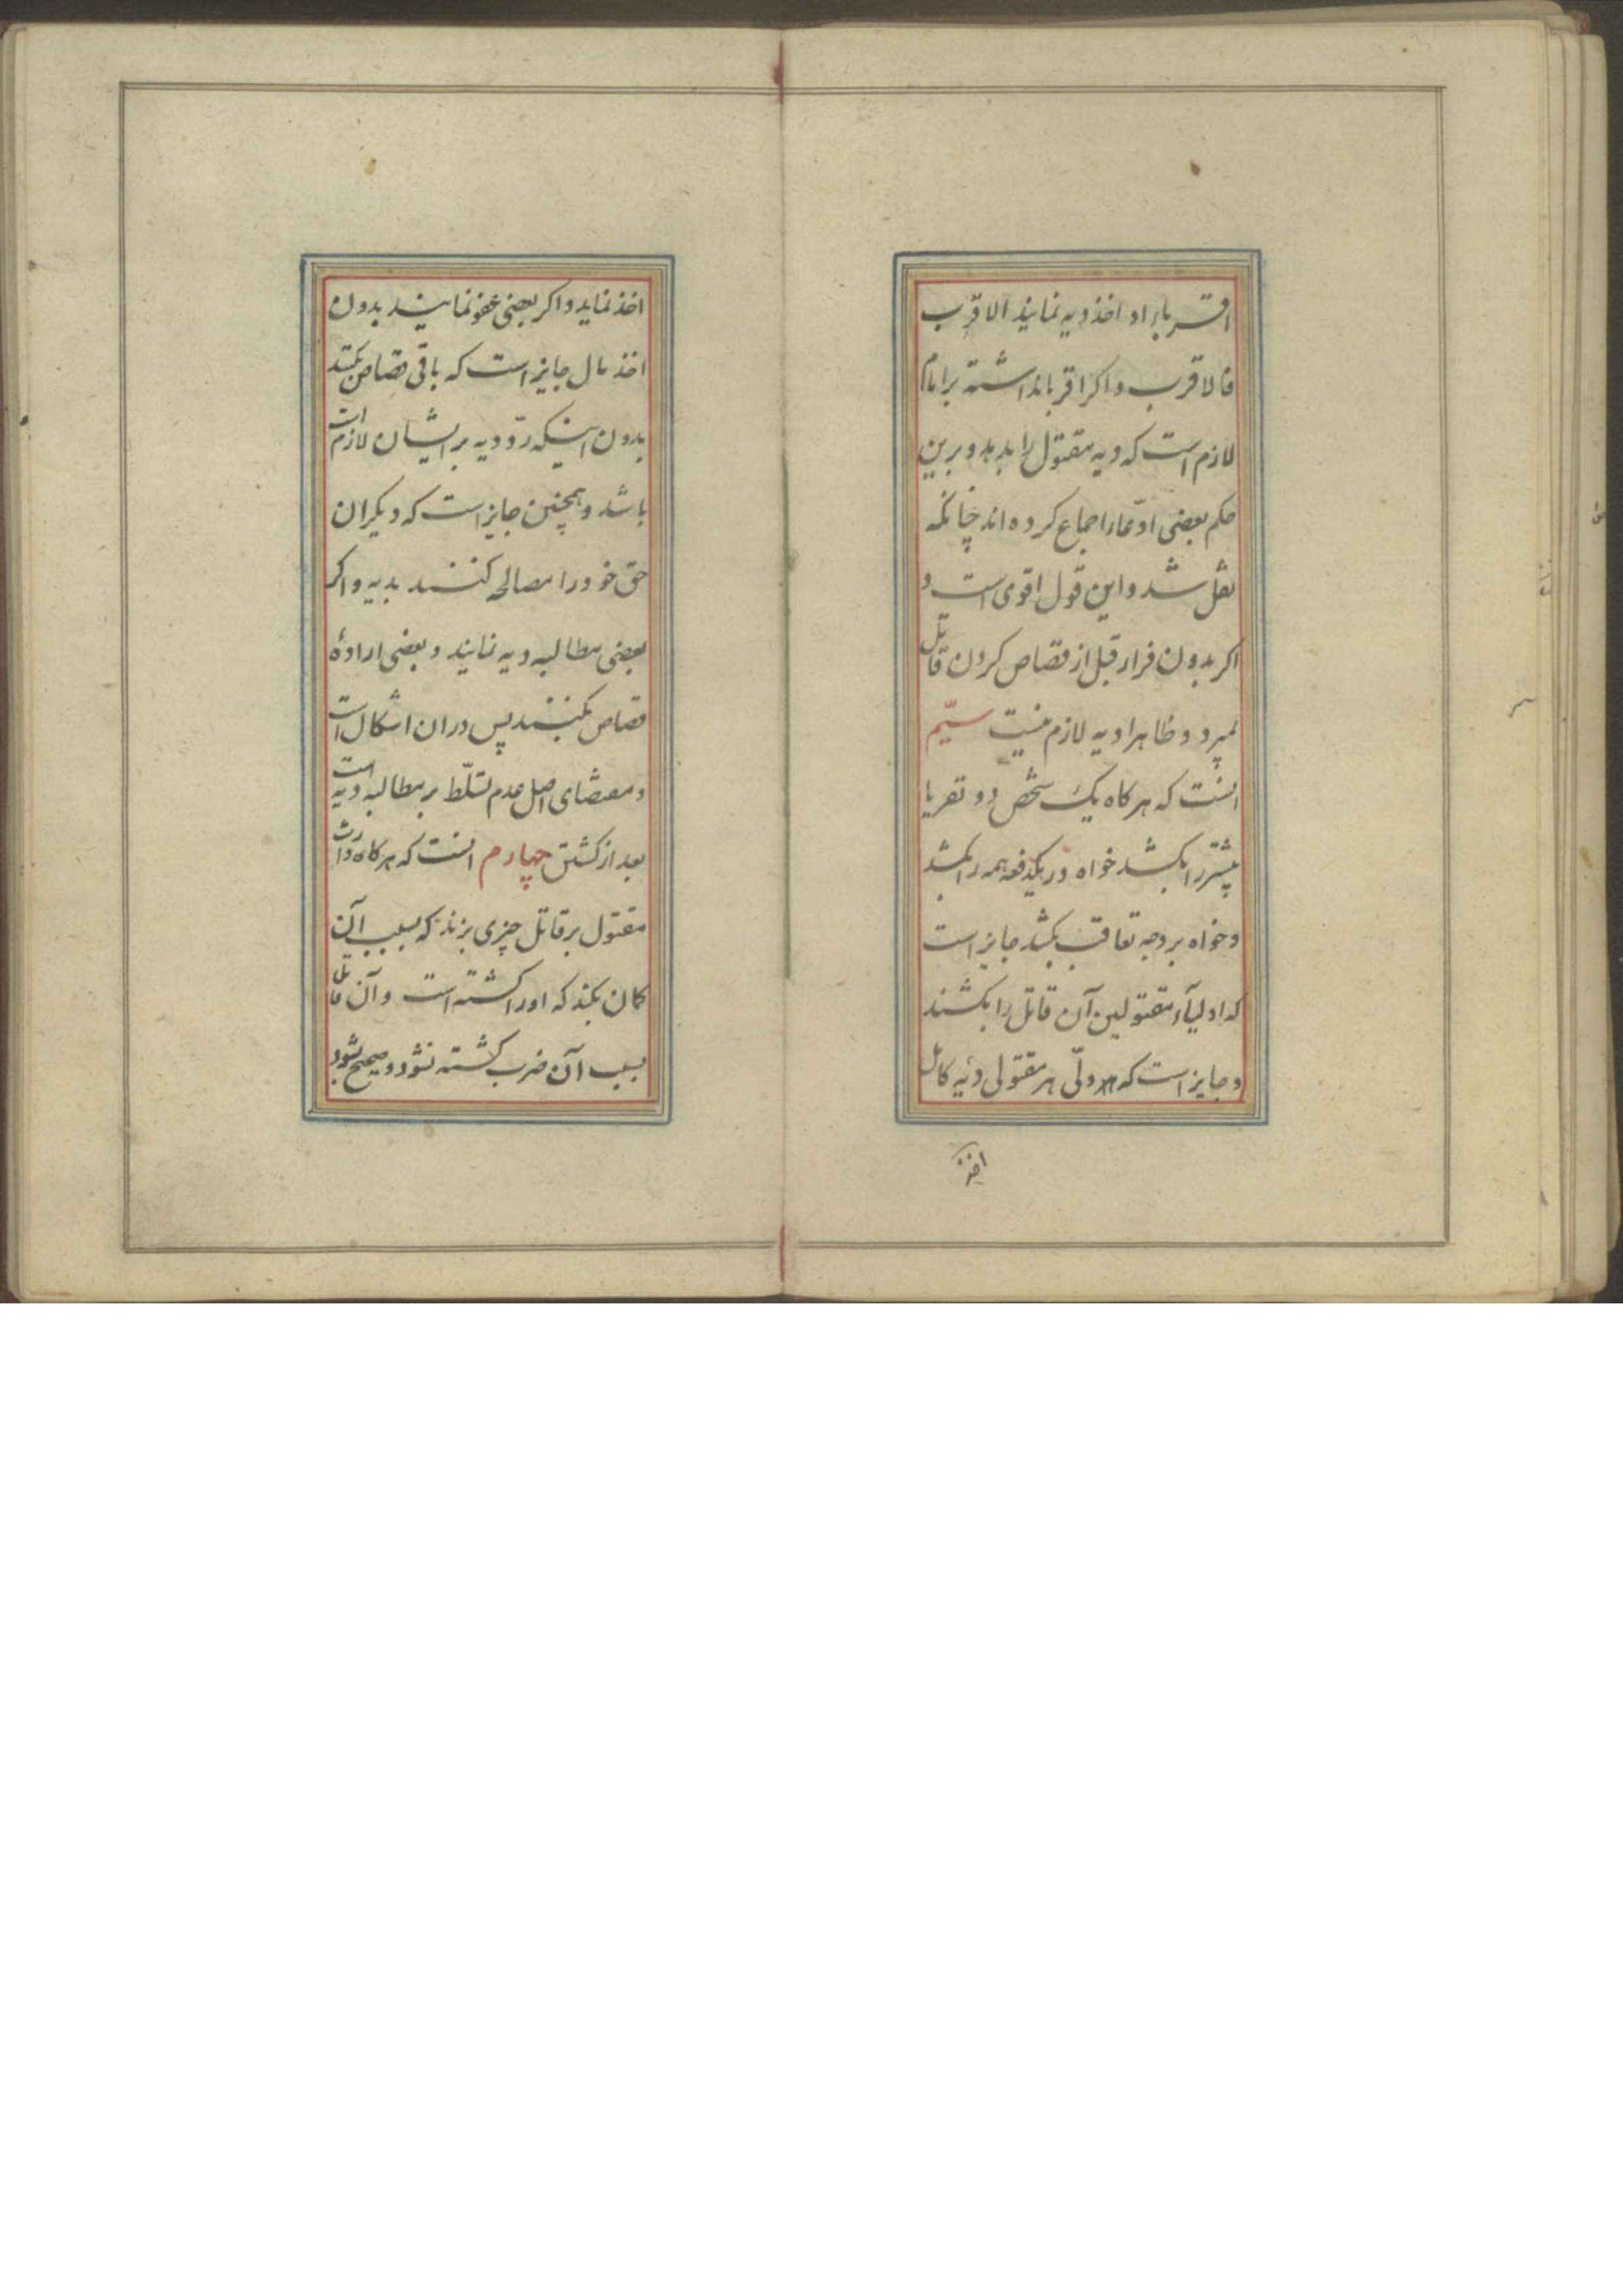 اقرباء او اخذ دیه نمایند الاقرب
فالاقرب و اکر اقربا نداشته بر امام
لازم است که دیه مقتول را بدهد و برین
حکم بعضی ادّعاء اجماع کرده اند چنانکه
نقل شد و این قول اقوی است و
اکر بدون فرار قبل از قصاص کردن قاتل
بمیرد و ظاهرا دیه لازم نیست سیّم
انست که هر کاه یک شخص دو نفر یا
بیشتر را بکشد خواه در یکدفعه همه را بکشد
و خواه بر وجه تعاقب بکشد جایز است
که اولیآء مقتولین آن قاتل را بکشند
و جایز است که هر ولّی هر مقتولی دیه کامل
اخذ
اخذ نماید و اکر بعضی عفو نمایند بدون
اخذ مال جایز است که باقی قصاص بکنند
بدون اینکه ردّ دیه بر ایشان لازم است
باشد و همچنین جایز است که دیکران
حق خود را مصالحه کنند بدیه و اکر
بعضی مطالبه دیه نمایند و بعضی ارادهٔ
قصاص بکنند پس در ان اشکال است
و مقتضای اصل عدم تسلّط بر مطالبه دیه است
بعد از کشتن چهارم انست که هر کاه وارث
مقتول بر قاتل چیزی بزند که بسبب آن
کمان بکند که او را کشته است و آن قاتل
بسبب آن ضرب کشته نشود و صحیح بشود